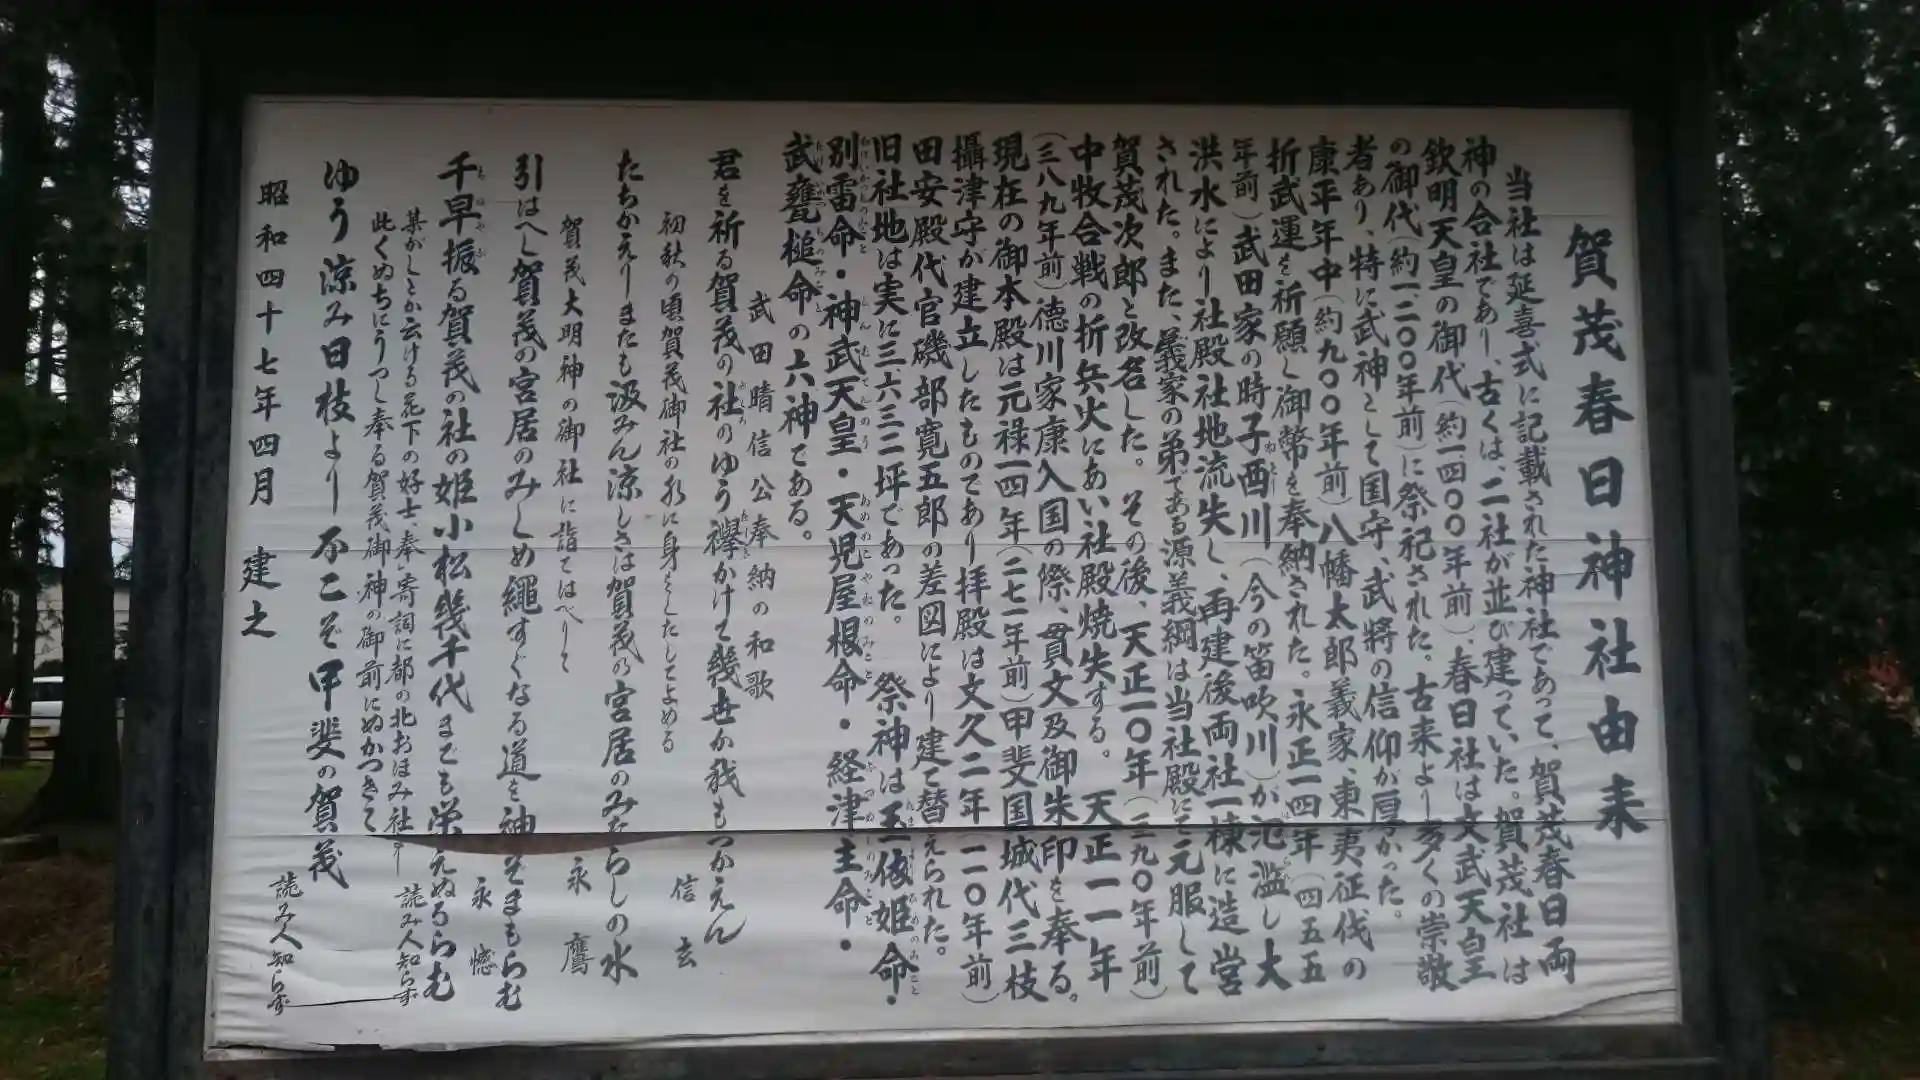 賀茂春日神社由来
当社は延喜式に記載された神社であって、賀茂春日両
神の合社であり、古くは、二社が並び建っていた。賀茂社は
欽明天皇の御代(約一、四〇〇年前)、春日社は文武天皇
の御代(約一、二〇〇年前)に祭祀された。古来より多くの崇敬
者あり、特に武神として国守、武将の信仰が厚かった。
康平年中(約九〇〇年前)八幡太郎義家、東夷征伐の
折武運を祈願し御幣を奉納された。永正一四年(四五五
年前)武田家の時子酉川(今の笛吹川)が氾濫し大
洪水により社殿社地流失し、再建後両社一棟に造営
された。また、義家の弟である源義綱は当社殿にて元服して
賀茂次郎と改名した。その後、天正一〇年(三九〇年前)
中牧合戦の折兵火にあい社殿焼失する。天正一一年
(三八九年前)徳川家康入国の際、貫文及御朱印を奉る。
現在の御本殿は元禄一四年(二七一年前)甲斐国城代三枝
攝津守が建立したものであり拝殿は文久二年(一一〇年前)
田安殿代官磯部寛五郎の差図により建て替えられた。
旧社地は実に三、六三二坪であった。祭神は玉依姫命・
別雷命・神武天皇・天児屋根命・経津主命・
武甕槌命の六神である。
武田晴信公奉納の和歌
君を祈る賀茂の社のゆう襷かけて幾世か我もつかえん
信玄
初秋の頃賀茂御社の水に身をとしてよめる
たちかえりまたも汲みん涼しさは賀茂の宮居のみたらしの水
永鷹
賀茂大明神の御社に詣てはべりて
引はへし賀茂の宮居のみしめ繩すぐなる道を神ぞまもらむ
永憾
千早振る賀茂の社の姫小松幾千代までも栄えぬるらむ
読み人知らず
某がしとか云ける花下の好士、奉寄詞に都の北おほみ社より
此くぬちにうつし奉る賀茂御神の御前にぬかつきて
ゆう涼み日枝より不こそ甲斐の賀茂
読み人知らず
昭和四十七年四月 建之